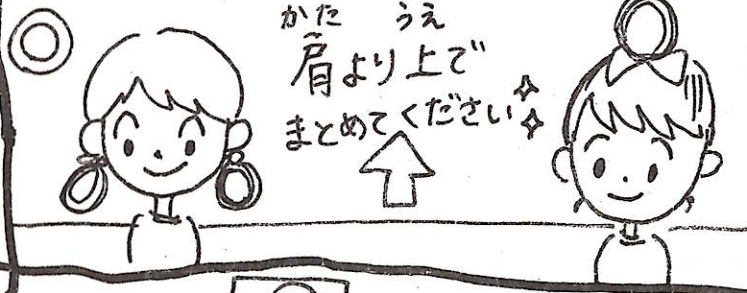 かた うえ
肩より上で
まとめてください